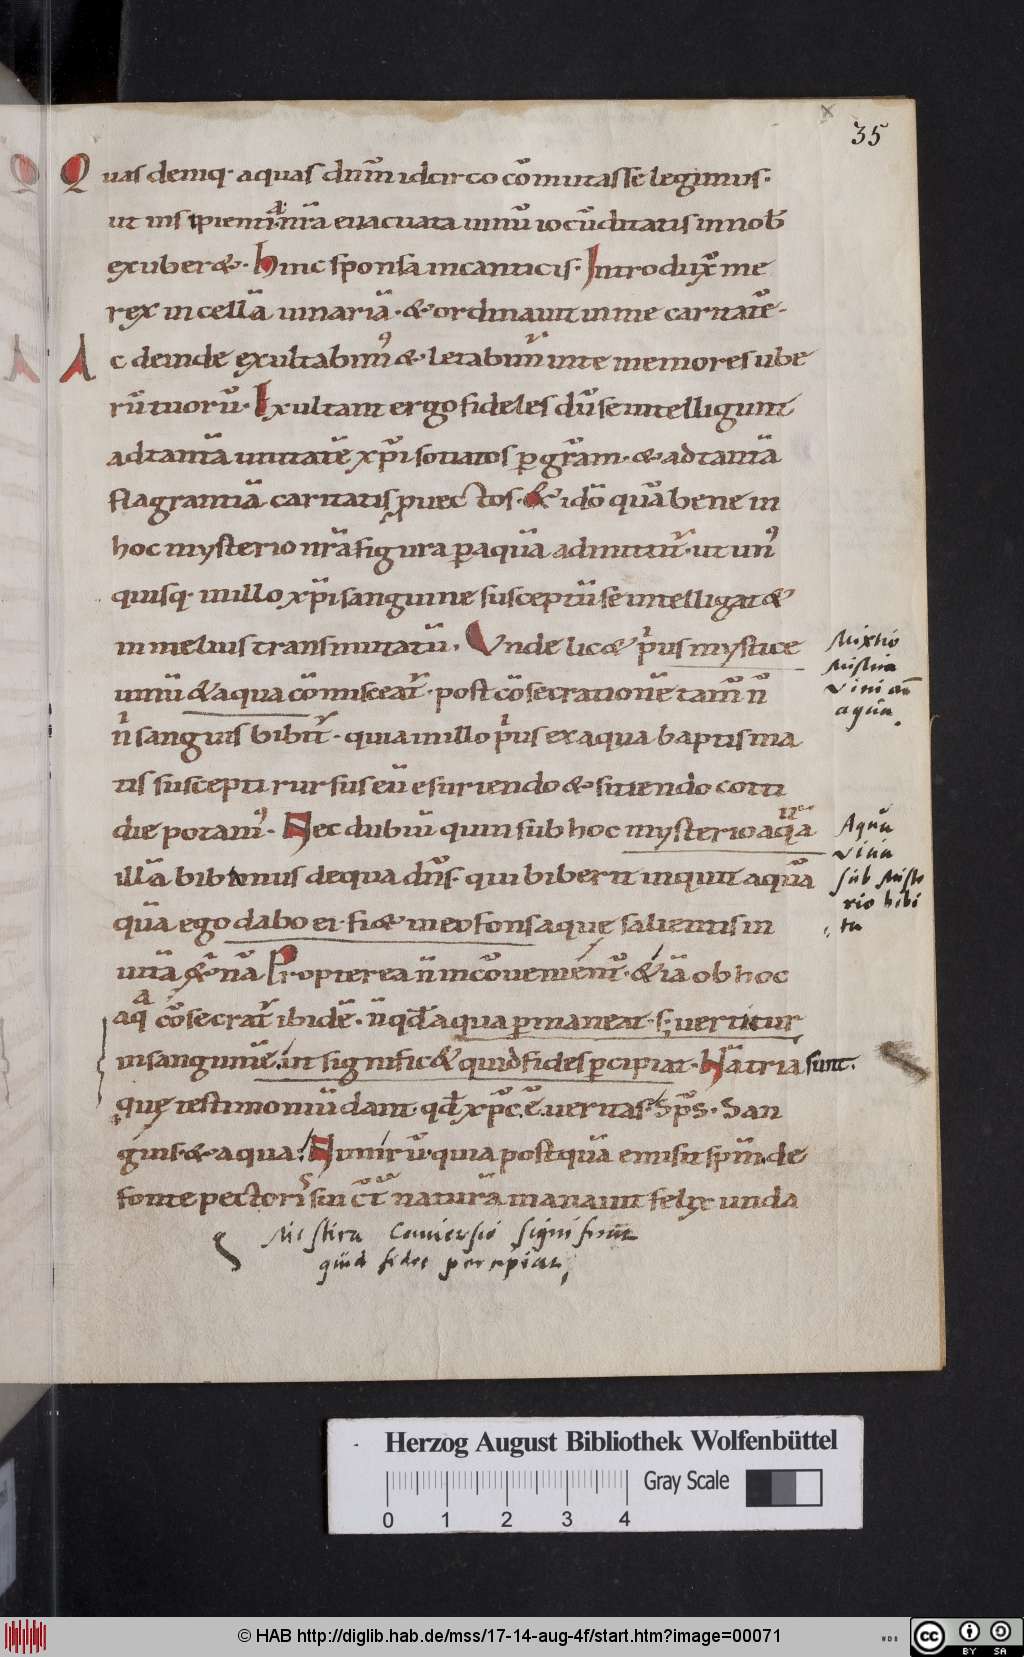 35
Quas deniq· aquas dnm̄ idcirco cōmutasse legimus·
ut insipientia nr̄a euacuata uinū iocūditatis in nob̄
exuber&· Hinc sponsa in canticis· Introdux̄ me
rex in cellā uinariā· & ordinauit in me caritatē·
Ac deinde exultabim⁹ & letabimur̄ in te memores ube
rū tuorū· Exultant ergo fideles dū se intelligunt
ad tantā unitatē xp̄i sotiatos p gr̄am· & ad tantā
flagrantiā caritatis puectos· & idō quā bene in
hoc mysterio nr̄a figura p aquā admittit̄· ut un⁹
quisq· in illo xp̄i sanguine susceptū se intelligat &
in melius transmutatū. Unde lic& pⁱus mystice
uinū & aqua cōmisceat̄· post cōsecrationē tam̄ n̄
nⁱ sanguis bibit̄· quia in illo pⁱus ex aqua baptisma
tis suscepti rursus eū esuriendo & sitiendo cotti
die potam⁹· Nec dubiū quin sub hoc mysterio aquā
illā bibimus de qua dn̄s· qui biberit inquit aquā
quā ego dabo ei· fi& in eo fons aquę salientis in
uitā &̄nā Propterea n̄ incōuenient̄· & iā ob hoc
aqᵃ cōsecrat̄ ibidē· n̄ qd̄ aqua pmaneat· s; uertitur
in sanguinē· ut signific& quid fides pcipiat· Hā tria sunt·
quę testimoniū dant· qd̄ xp̄c ē ueritas· Sp̄s· San
guis· & aqua· Nimirū quia postquā emisit spm̄· de
fonte pectoris sin ct̄ naturā manauit felix unda
Mixtio
Mistica
vini cū
aqua.
Aquā
viuā
sub Miste
rio bibi
tu
Mistica Conuersio significat
quid fides percipiat,
Herzog August Bibliothek Wolfenbüttel
Gray Scale
0 1 2 3 4
© HAB http://diglib.hab.de/mss/17-14-aug-4f/start.htm?image=00071
WDB
cc
BY SA